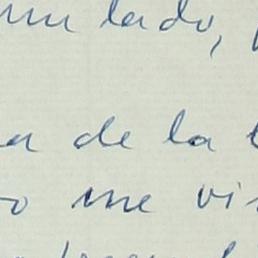 un lado,
a de la
o me vi